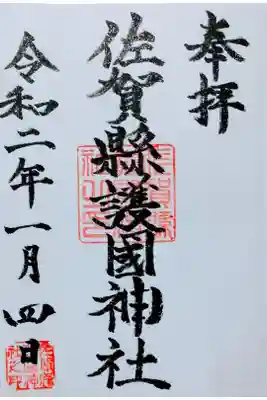 奉拝
佐賀縣護國神社
令和二年一月四日